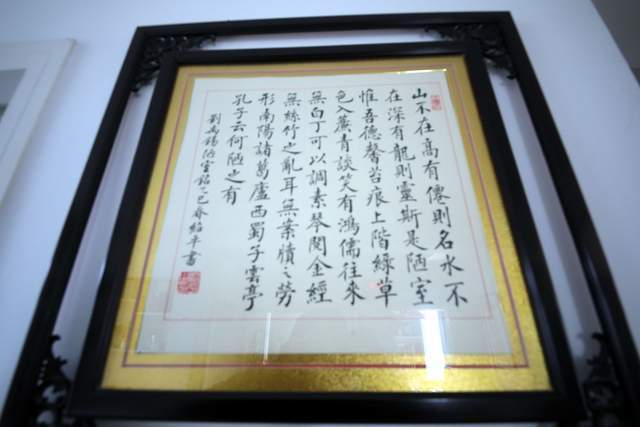 山不在高有僊則名水不
在深有龍則靈斯是陋室
惟吾德馨苔痕上階綠草
色入簾青談笑有鴻儒往來
無白丁可以調素琴閱金經
無絲竹之亂耳無案牘之勞
形南陽諸葛廬西蜀子雲亭
孔子云何陋之有
劉禹錫陋室銘乙巳春紹平書